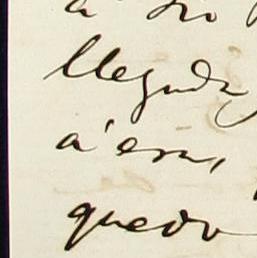 a
llegada
a esa,
quedo